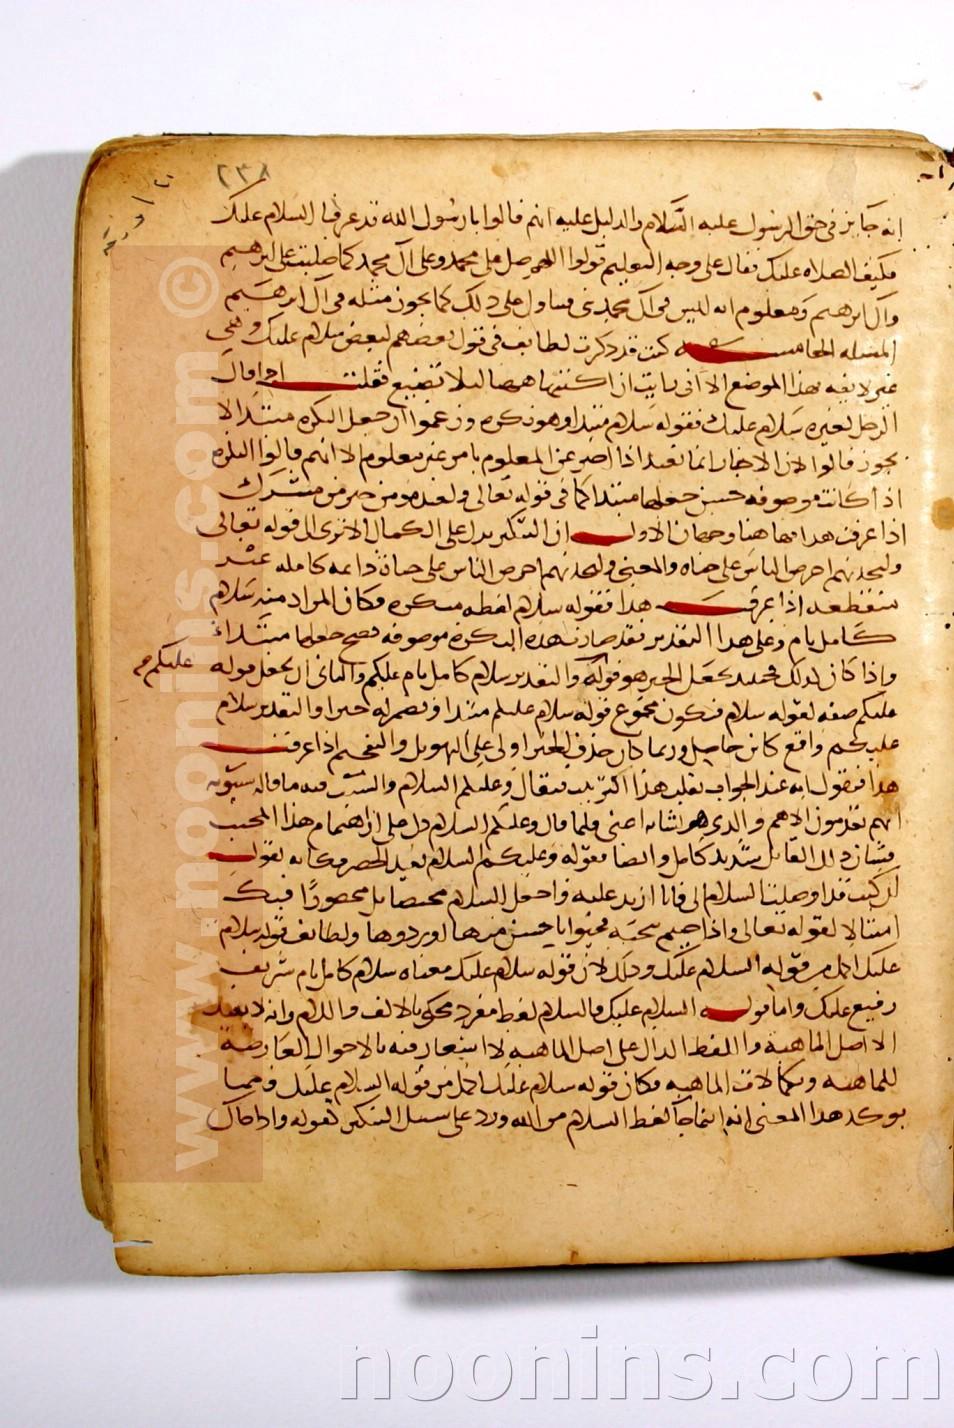 ٢٣٨
انه جايز في حق الرسول عليه السلام والدليل عليه انهم قالوا يا رسول الله قد عرفنا السلام عليك
فكيف الصلاه عليك فقال على وجه التعليم قولوا اللهم صل على محمد وعلى آل محمد كما صليت على ابرهيم
وآل ابرهيم ومعلوم انه ليس في آل محمد نبي فتناول على ذلك كما يجوز مثله في آل ابرهيم
المسله الخامسه كنت قد ذكرت لطايف في قول بعضهم لبعض سلام عليك وهي
غير لايقه بهذا الموضع الا اني رايت ان اكتبها ههنا ليلا تضيع فقلت اذا قال
الرجل لغيره سلام عليك فقوله سلام مبتدا وهو نكره وزعموا ان جعل النكره مبتدا لا
يجوز قالوا لان الاخبار انما يفيد اذا اخبر عن المعلوم بامر غير معلوم الا انهم قالوا النكره
اذا كانت موصوفه حسن جعلها مبتدا كما في قوله تعالى ولعبد مومن خير من مشرك
اذا عرفت هذا فهاهنا وجهان الاول ان التنكير يدل على الكمال الا ترى الى قوله تعالى
ولتجدنهم احرص الناس على حياه والمعنى ولتجدنهم احرص الناس على حياة دايمه كامله غير
منقطعه اذا عرفت هذا فقوله سلام لفظه منكره فكان المراد منه سلام
كامل تام وعلى هذا التقدير فقد صارت هذه النكره موصوفه فصح جعلها مبتداء
واذا كان كذلك فحينيذ يحصل الخبر وهو قوله والتقدير سلام كامل تام عليكم والثاني ان يجعل قوله
عليكم صح
عليكم صفه لقوله سلام فيكون مجموع قوله سلام عليكم مبتدا ويضمر له خبرا والتقدير سلام
عليكم واقع كاين حاصل وربما كان حذف الخبر اولى على التهويل والتفخيم اذا عرفت
هذا فنقول انه عند الجواب يقلب هذا الترتيب فيقال وعليكم السلام والسبب فيه ما قاله سيبويه
انهم يقدمون الاهم والذي هو بشانه اعنى فلما قال وعليكم السلام دل على ان اهتمام هذا المجيب
بشان ذلك القايل شديد كامل وايضا فقوله وعليكم السلام يفيد الحصر فكانه يقول
ان كنت قد اوصلت السلام الي فانا ازيد عليه واجعل السلام مختصا بك محصورا فيك
امتثالا لقوله تعالى واذا حييتم بتحيه فحيوا باحسن منها او ردوها ولطايف قوله سلام
عليك اكمل من قوله السلام عليك وذلك لان قوله سلام عليك معناه سلام كامل تام شريف
رفيع عليك واما قوله السلام عليك فالسلام لفظ مفرد محلى بالالف واللام وانه لا يفيد
الا اصل الماهية واللفظ الدال على اصل الماهيه لا اشعار فيه بالاحوال العارضة
للماهيه وبكمالات الماهيه فكان قوله سلام عليك اكمل من قوله السلام عليك ومما
يوكد هذا المعنى انه اينما جآ لفظ السلام من الله ورد على سبيل التنكير كقوله واذا جاك
www.noonins.com ©
noonins.com